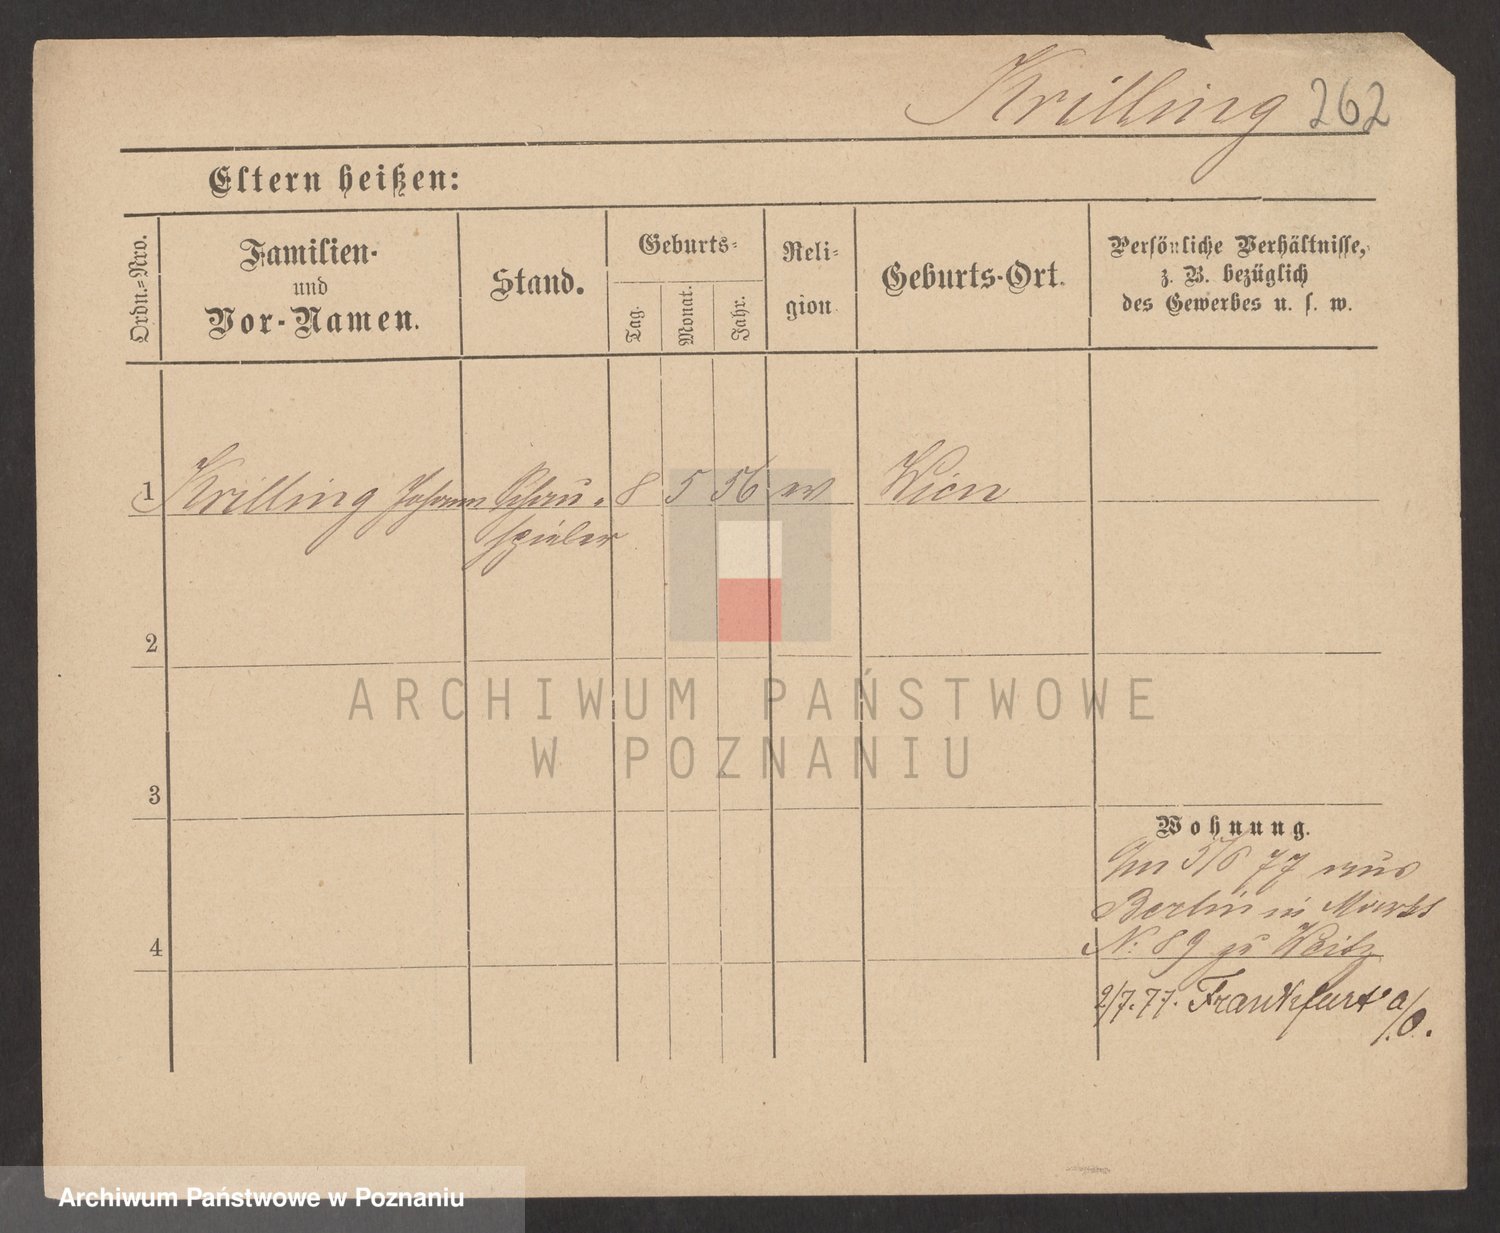 Krilling 262
Eltern heißen:
Ordn.=Nro.
Familien-
und
Vor-Namen.
Stand.
Geburts-
Tag.
Monat.
Jahr.
Reli-
gion
Geburts-Ort.
Persönliche Verhältnisse,
z. B. bezüglich
des Gewerbes u. s. w.
1 Krilling Johann Schau- 8 5 56 ev Wien
spieler
2
3
4
Wohnung.
Am 5/6 77 aus
Berlin in Markt
N: 89 zu Weitz
2/7.77. Frankfurt a/O.
ARCHIWUM PAŃSTWOWE
W POZNANIU
Archiwum Państwowe w Poznaniu